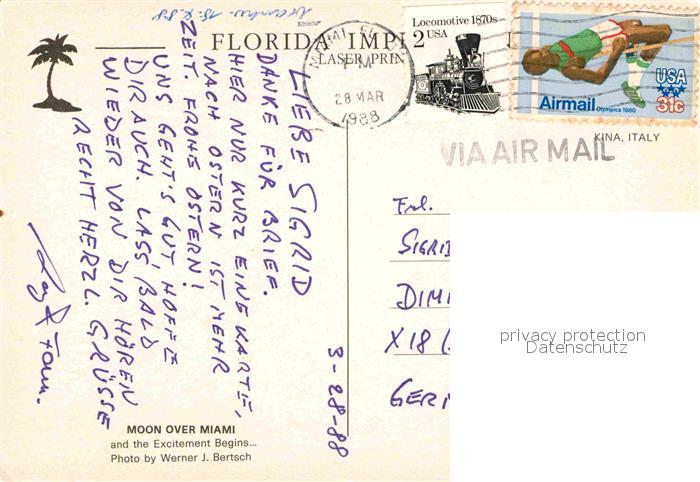 FLORIDA IMPI
LASER PRIN
MIAMI, FL
PM
28 MAR
1988
Locomotive 1870s
2 USA
USA
31c
Airmail Olympics 1980
KINA, ITALY
VIA AIR MAIL
LIEBE SIGRID
DANKE FÜR BRIEF.
HIER NUR KURZ EINE KARTE,
NACH OSTERN IST MEHR
ZEIT. FROHE OSTERN!
UNS GEHT'S GUT HOFFE
DIR AUCH. LASS' BALD
WIEDER VON DIR HÖREN
RECHT HERZL. GRÜSSE
& Fam.
3-28-88
Frl.
SIGRID
DIMI
X18
GER
privacy protection
Datenschutz
MOON OVER MIAMI
and the Excitement Begins...
Photo by Werner J. Bertsch